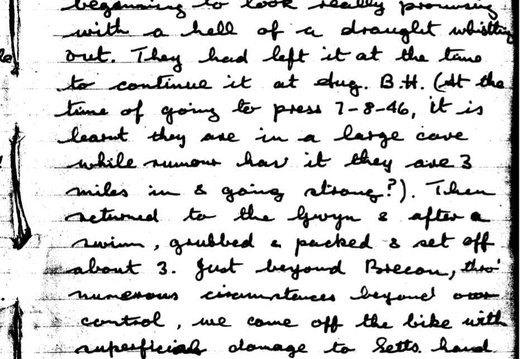 beginning to look really promising
with a hell of a draught whistling
out. They had left it at the time
to continue it at Aug. B.H. (At the
time of going to press 7-8-46, it is
learnt they are in a large cave
while rumour has it they are 3
miles in & going strong?). Then
returned to the Gwyn & after a
swim, grubbed & packed & set off
about 3. Just beyond Brecon, thro'
numerous circumstances beyond our
control, we came off the bike with
superficial damage to Setts. hand